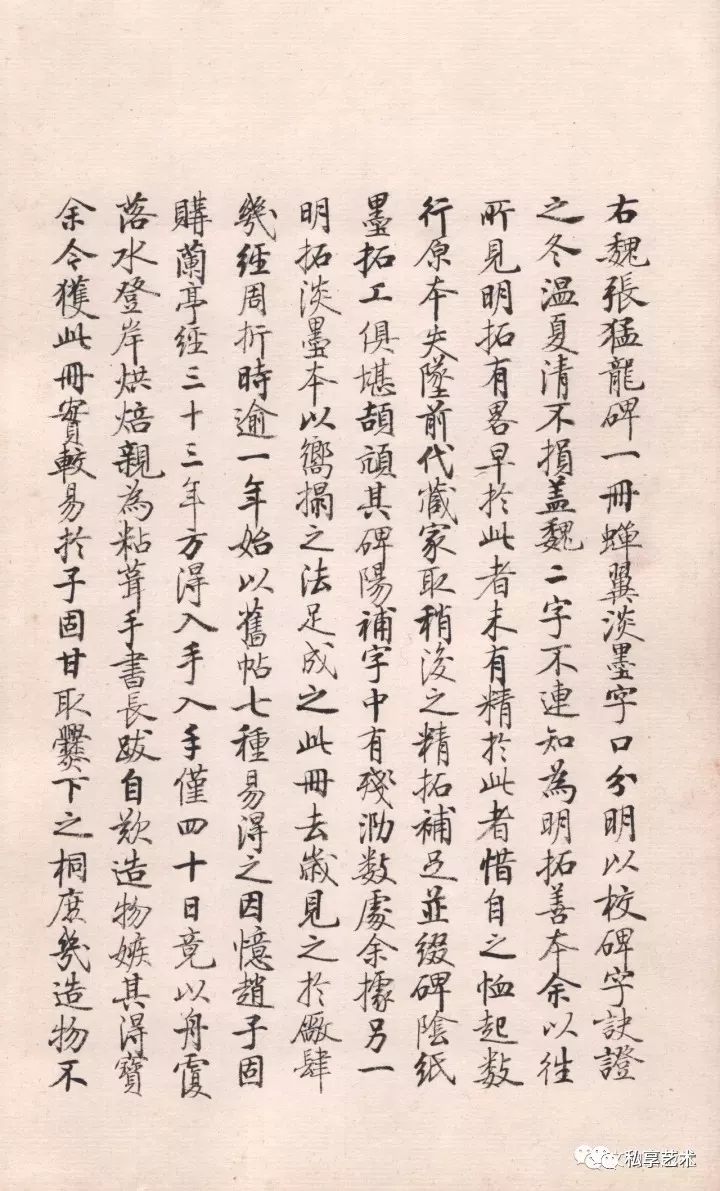 右魏張猛龍碑一冊蟬翼淡墨字口分明以校碑字訣證
之冬温夏清不損盖魏二字不連知為明拓善本余以往
所見明拓有畧早於此者未有精於此者惜自之恤起数
行原本失墜前代藏家取稍後之精拓補足並綴碑陰紙
墨拓工俱堪頡頏其碑陽補字中有殘泐数處余據另一
明拓淡墨本以嚮搨之法足成之此冊去歲見之於廠肆
幾經周折時逾一年始以舊帖七種易得之因憶趙子固
購蘭亭經三十三年方得入手入手僅四十日竟以舟覆
落水登岸烘焙親為粘葺手書長跋自歎造物嫉其得寶
余今獲此冊實較易於子固甘取爨下之桐庶幾造物不
私享艺术